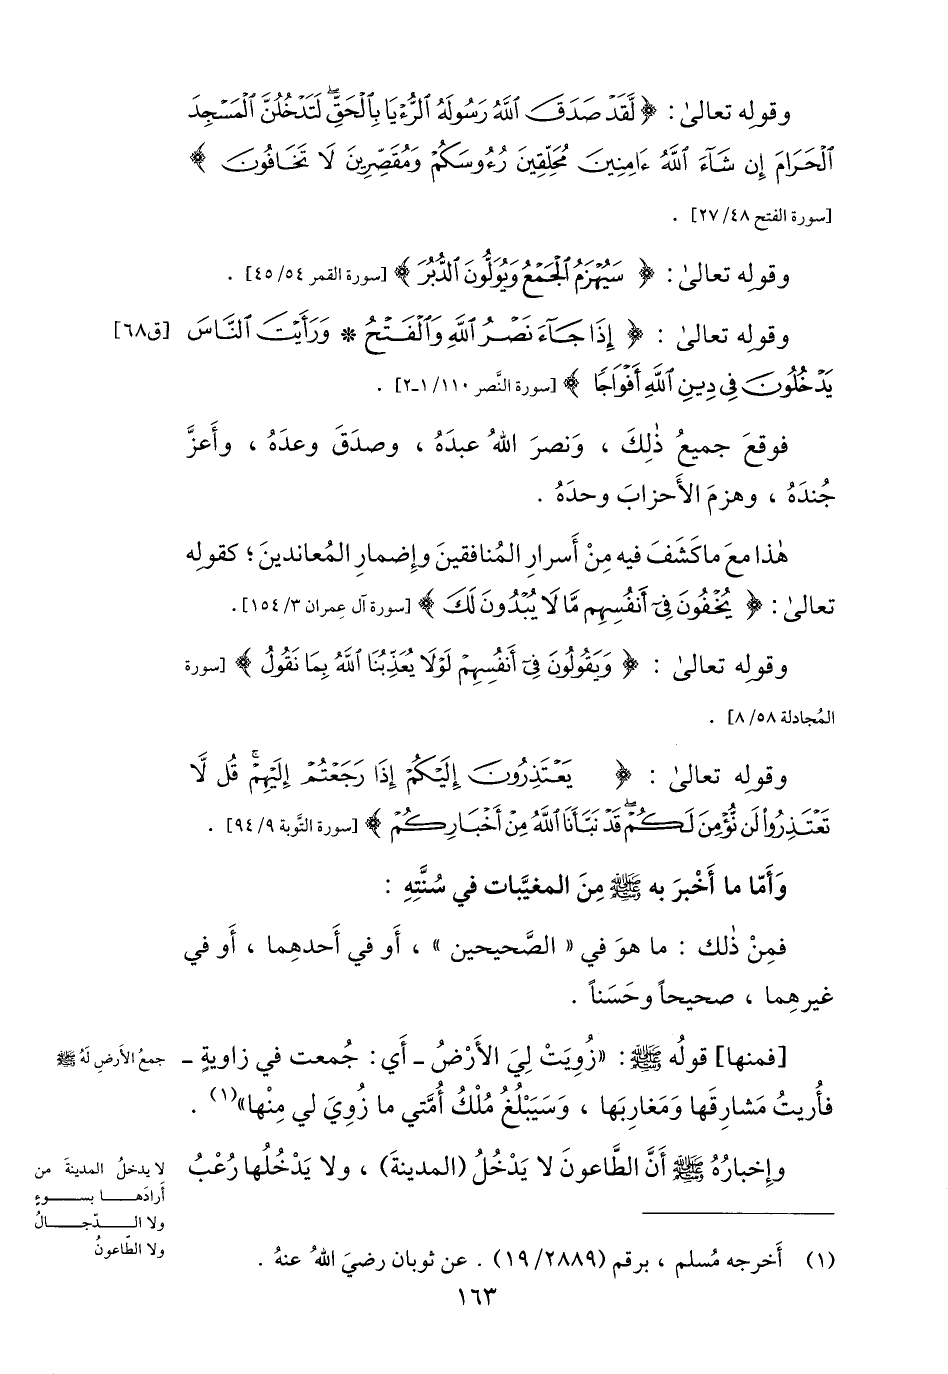 وقولِه تعالىٰ : ﴿ لَّقَدْ صَدَقَ ٱللَّهُ رَسُولَهُ ٱلرُّءْيَا بِٱلْحَقِّ ۖ لَتَدْخُلُنَّ ٱلْمَسْجِدَ
ٱلْحَرَامَ إِن شَآءَ ٱللَّهُ ءَامِنِينَ مُحَلِّقِينَ رُءُوسَكُمْ وَمُقَصِّرِينَ لَا تَخَافُونَ ﴾
[سورة الفتح ٤٨/ ٢٧] .
وقولِه تعالىٰ : ﴿ سَيُهْزَمُ ٱلْجَمْعُ وَيُوَلُّونَ ٱلدُّبُرَ ﴾ [سورة القمر ٥٤/ ٤٥] .
وقولِه تعالىٰ : ﴿ إِذَا جَآءَ نَصْرُ ٱللَّهِ وَٱلْفَتْحُ * وَرَأَيْتَ ٱلنَّاسَ [ق٦٨]
يَدْخُلُونَ فِى دِينِ ٱللَّهِ أَفْوَاجًا ﴾ [سورة النَّصر ١١٠/ ١ـ٢] .
فوقعَ جميعُ ذٰلِكَ ، وَنصرَ اللهُ عبدَهُ ، وصدَقَ وعدَهُ ، وأَعزَّ
جُندَهُ ، وهزمَ الأَحزابَ وحدَهُ .
هٰذا معَ ما كَشَفَ فيه مِنْ أَسرارِ المُنافقينَ وإِضمارِ المُعاندينَ ؛ كقولِه
تعالىٰ : ﴿ يُخْفُونَ فِىٓ أَنفُسِهِم مَّا لَا يُبْدُونَ لَكَ ﴾ [سورة آل عِمران ٣/ ١٥٤] .
وقولِه تعالىٰ : ﴿ وَيَقُولُونَ فِىٓ أَنفُسِهِمْ لَوْلَا يُعَذِّبُنَا ٱللَّهُ بِمَا نَقُولُ ﴾ [سورة
المُجادلة ٥٨/ ٨] .
وقولِه تعالىٰ : ﴿ يَعْتَذِرُونَ إِلَيْكُمْ إِذَا رَجَعْتُمْ إِلَيْهِمْ ۚ قُل لَّا
تَعْتَذِرُوا۟ لَن نُّؤْمِنَ لَكُمْ ۖ قَدْ نَبَّأَنَا ٱللَّهُ مِنْ أَخْبَارِكُمْ ﴾ [سورة التَّوبة ٩/ ٩٤] .
وَأَمّا ما أَخْبرَ به ﷺ مِنَ المغيَّبات في سُنَّتِهِ :
فمِنْ ذٰلك : ما هوَ في « الصَّحيحين » ، أَو في أَحدهِما ، أَو في
غيرِهِما ، صحيحاً وحَسَناً .
[فمنها] قولُه ﷺ : «زُوِيَتْ لِيَ الأَرْضُ ـ أَي : جُمعت في زاويةٍ ـ
جمعُ الأَرضِ لَهُ ﷺ
فأُريتُ مَشارِقَها وَمَغاربَها ، وَسَيَبْلُغُ مُلْكُ أُمَّتي ما زُوِيَ لي مِنْها»(١) .
وإِخبارُهُ ﷺ أَنَّ الطَّاعونَ لا يَدْخُلُ (المدينةَ) ، ولا يَدْخُلُها رُعْبُ
لا يدخلُ المدينةَ من
أَرادَهـا بسـوءٍ
ولا الـدّجـالُ
ولا الطّاعونُ
(١) أَخرجه مُسلم ، برقم (٢٨٨٩/ ١٩) . عن ثوبان رضيَ اللهُ عنهُ .
١٦٣